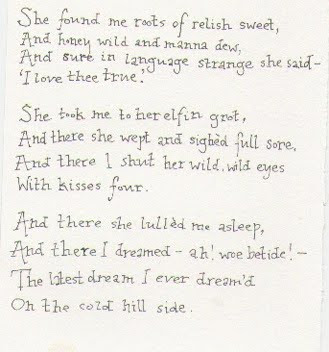 She found me roots of relish sweet,
And honey wild and manna dew,
And sure in language strange she said–
'I love thee true.'
She took me to her elfin grot,
And there she wept and sighèd full sore,
And there I shut her wild, wild eyes
With kisses four.
And there she lullèd me asleep,
And there I dreamed – ah! woe betide! –
The latest dream I ever dream'd
On the cold hill side.